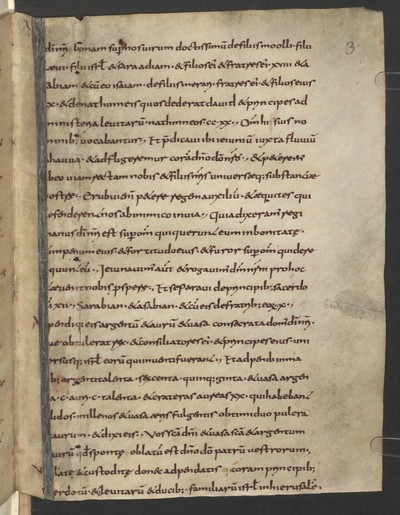 3
dīm̄ bonam sup nos uirum doctissimū defiliis moolli· filii
leui· filii isrl̄ & sarabiam· & filios ei· & fratres ei· xviii· & a
sabiam· & cū eo isaiam· de filiis merari· fratres ei· & filios eius
xx· & de nathinneis quos dederat dauid & principes ad
ministeria leuitarū· nathinneos· cc·xx· Om̄s hi suis no
minib; uocabantur· Et p̄dicaui ibi ieiuniū iuxta fluuiū
hahaua· & adfligeremur corā dn̄o dō nr̄o· & peterem'
ab eo uiam rectam nobis & filiis nr̄is uniuersęq; substantiae
nostre· Erubui enī petere regē auxiliū· & equites qui
defenderent nos ab inimico in uia· Quia dixeram' regi
manus dī nr̄i est sup om̄s qui querunt eum in bonitate·
& imperium eius· & fortitudo eius· & furor sup om̄s qui dere
linquunt eū· Ieiunauim' aūt & rogauim' dm̄ nr̄m pro hoc
& euenit nobis prospere· Et separaui de principib; sacerdo
tū xii· Sarabian· & asabian· & cū eis de fratrib; eoꝝ x·
Appendiq; eis argentū & aurū & uasa consecrata dom' dī nr̄i·
que obtulerat rex· & consiliatores ei· & principes eius· uni
uersusq; isrl̄ eorū qui inuenti fuerant· Et adpendi in ma
nib; argenti talenta· sexcenta· quinquaginta· & uasa argen
tea· c· auri· c· talenta· & crateras aureas xx· qui habebant
solidos· millenos & uasa aeris fulgentis obtimi duo pulcra
ut aurum· & dixi eis· Vos sc̄i dn̄i & uasa sc̄a & argentum
& aurū qd̄ sponte oblatū est dn̄o dō patrū uestrorum·
uigilate & custodite donec adpendatis coram principib;
sacerdotū· & leuitarū & ducib; familiarū isrl̄ in hierusalē·